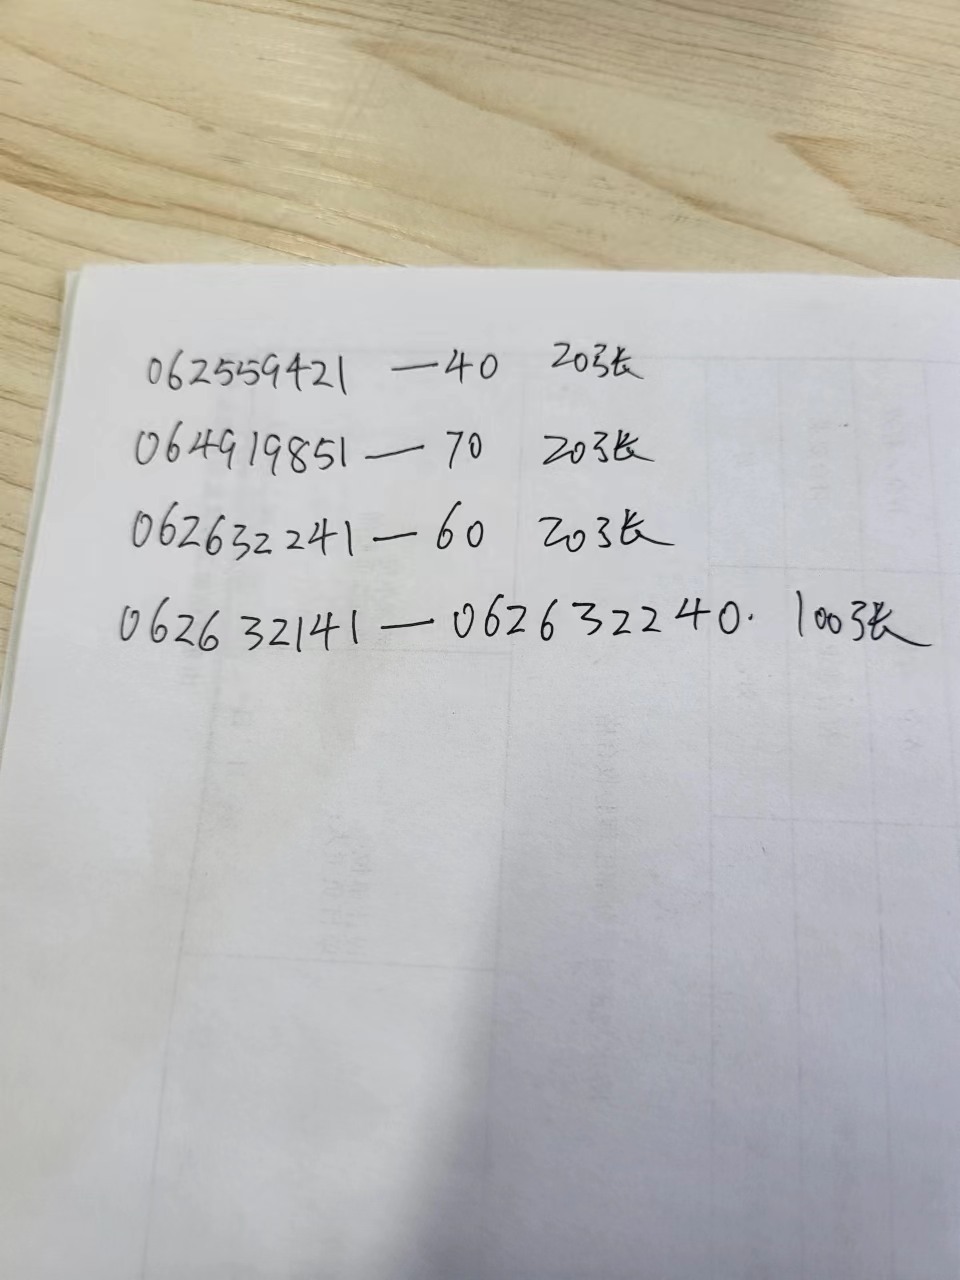 062559421 — 40 20张
064919851 — 70 20张
062632241 — 60 20张
062632141 — 062632240. 100张